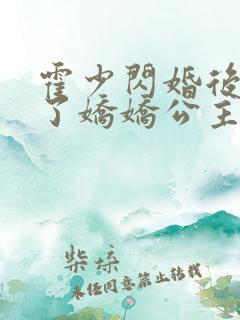 霍少閃婚後
了嬌嬌公主
柴垛
未經同意禁止轉載